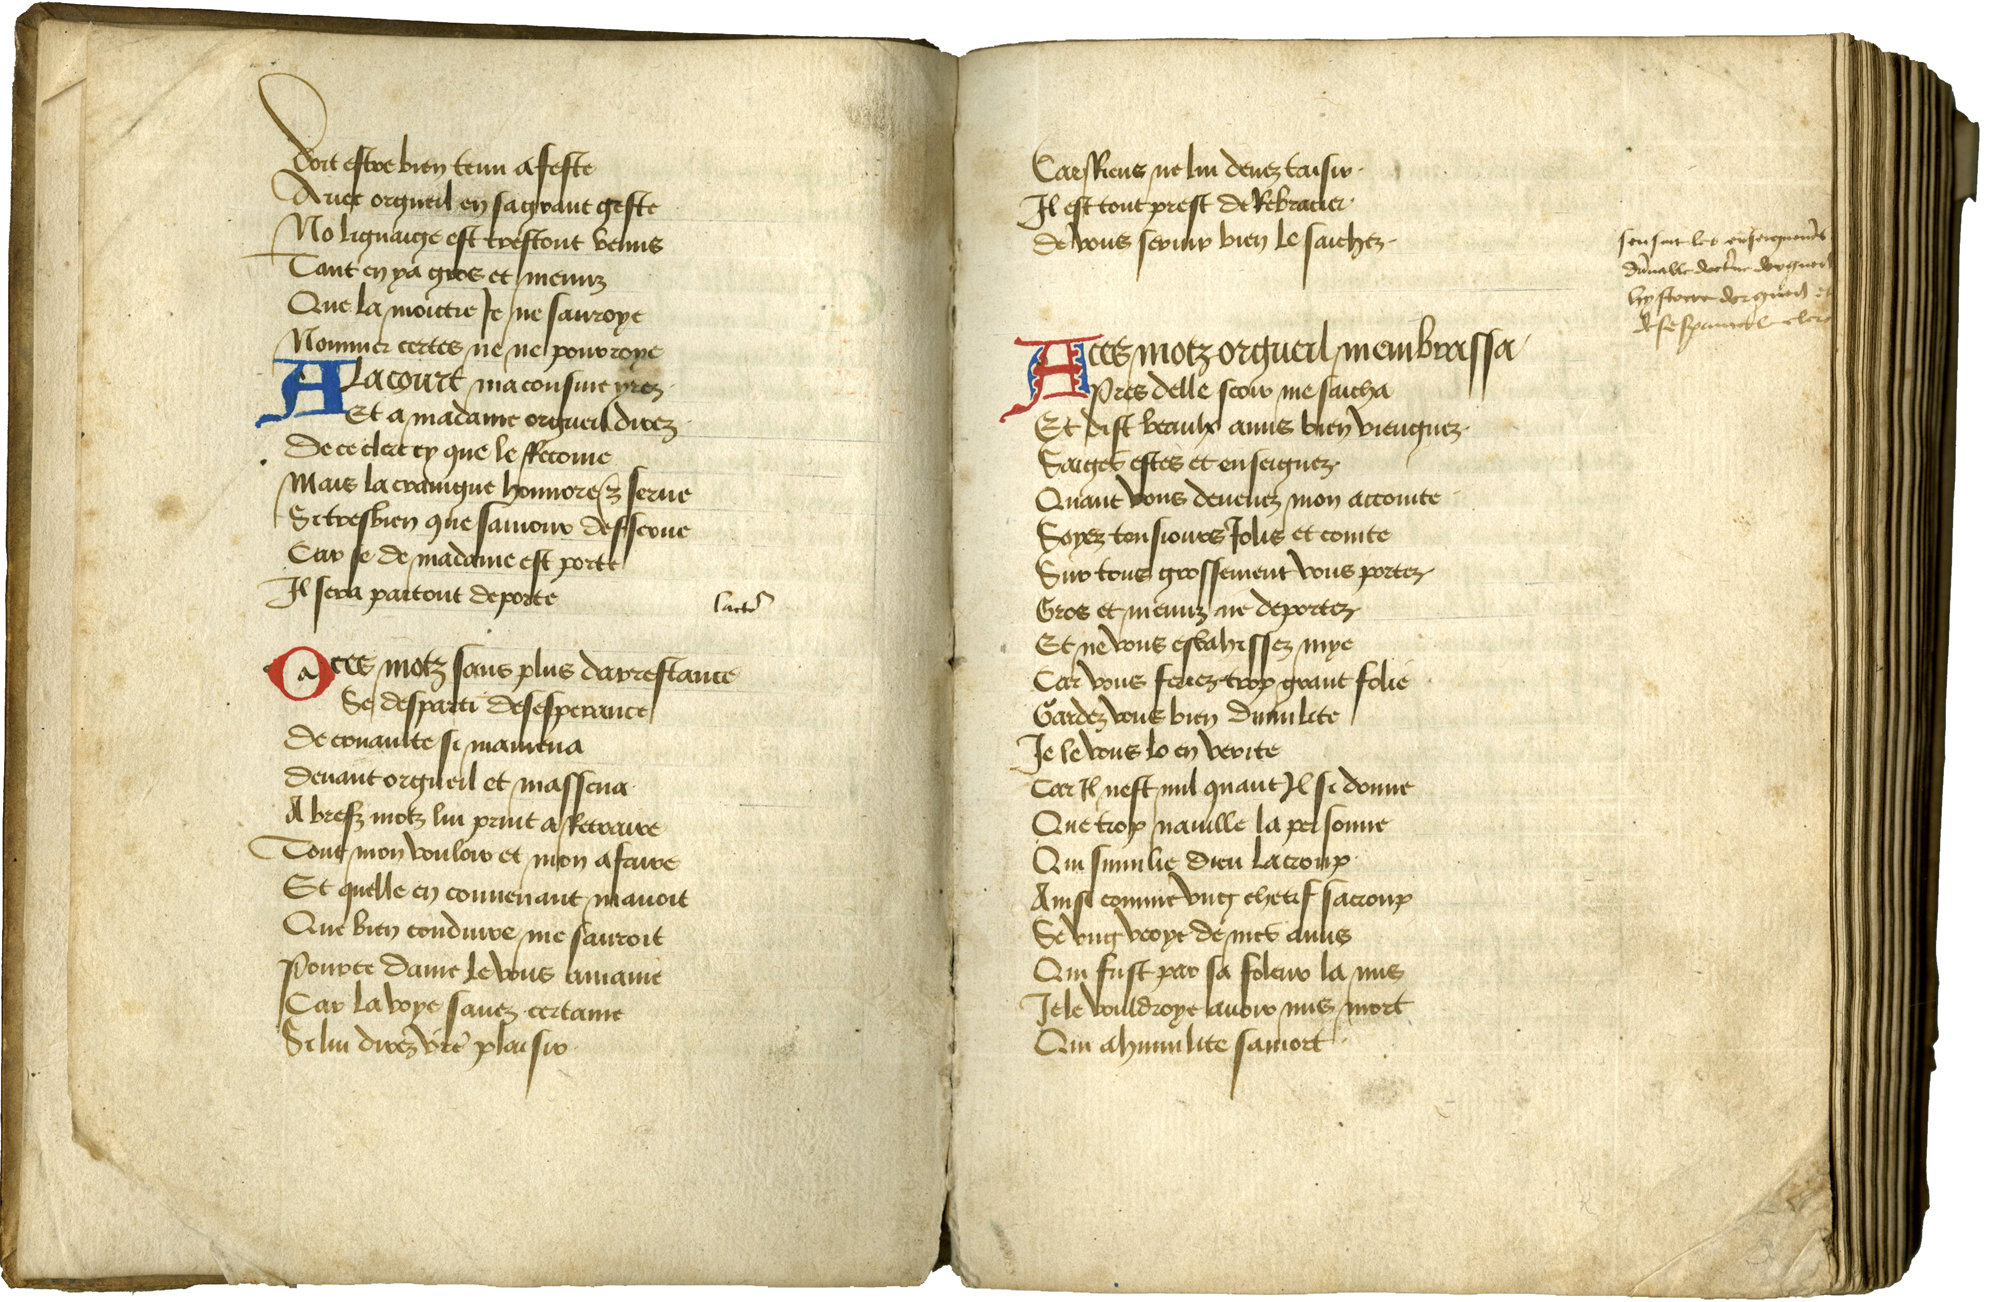 Doit estre bien tenu a feste
Avec orgueil en sa grant geste
No lignaige est trestout venus
Tant en y a gros et menuz
Que la moictie Je ne sauroye
Nommer certes ne ne pouvroye
A La court ma cousine yrez
Et a madame orgueil direz
De ce clerc cy que le Recoive
Mais la craingne honnore et serve
Si tresbien que samour desserve
Car se de madame est porte
Il sera partout deporte
lacteur
A ces motz sans plus darrestance
Se desparti desesperance
De couvoite si mamena
Devant orgueil et massena
A brefz motz lui print a Retraire
Tout mon vouloir et mon afaire
Et quelle en convenant mavoit
Que bien conduire me sauroit
Pource dame le vous amaine
Car la voye savez certaine
Si lui direz vre plaisir
Car Riens ne lui devez taisir
Il est tout prest de Rebracier
De vous servir bien le saichez
sensuit les enseignemens
orgueil
A ces motz orgueil membrassa
Pres delle seoir me saicha
Et dist beaulx amis bien viengnez
Saiges estes et enseignez
Quant vous devenez mon accointe
Soyez tousiours Jolis et cointe
Sur tous grossement vous portez
Gros et menuz ne deportez
Et ne vous esbahissez mye
Car vous feriez trop grant folie
Gardez vous bien dumilite
Je le vous lo en verite
Car Il nest nul quant Il si donne
Que trop naville la personne
Qui sumilie dieu lacroup
Ainsi comme ung chetif sacroup
Se ung veoye de mes amis
Qui fust par sa foleur la mis
Je le vouldroye avoir mis mort
Qui a humilite samort